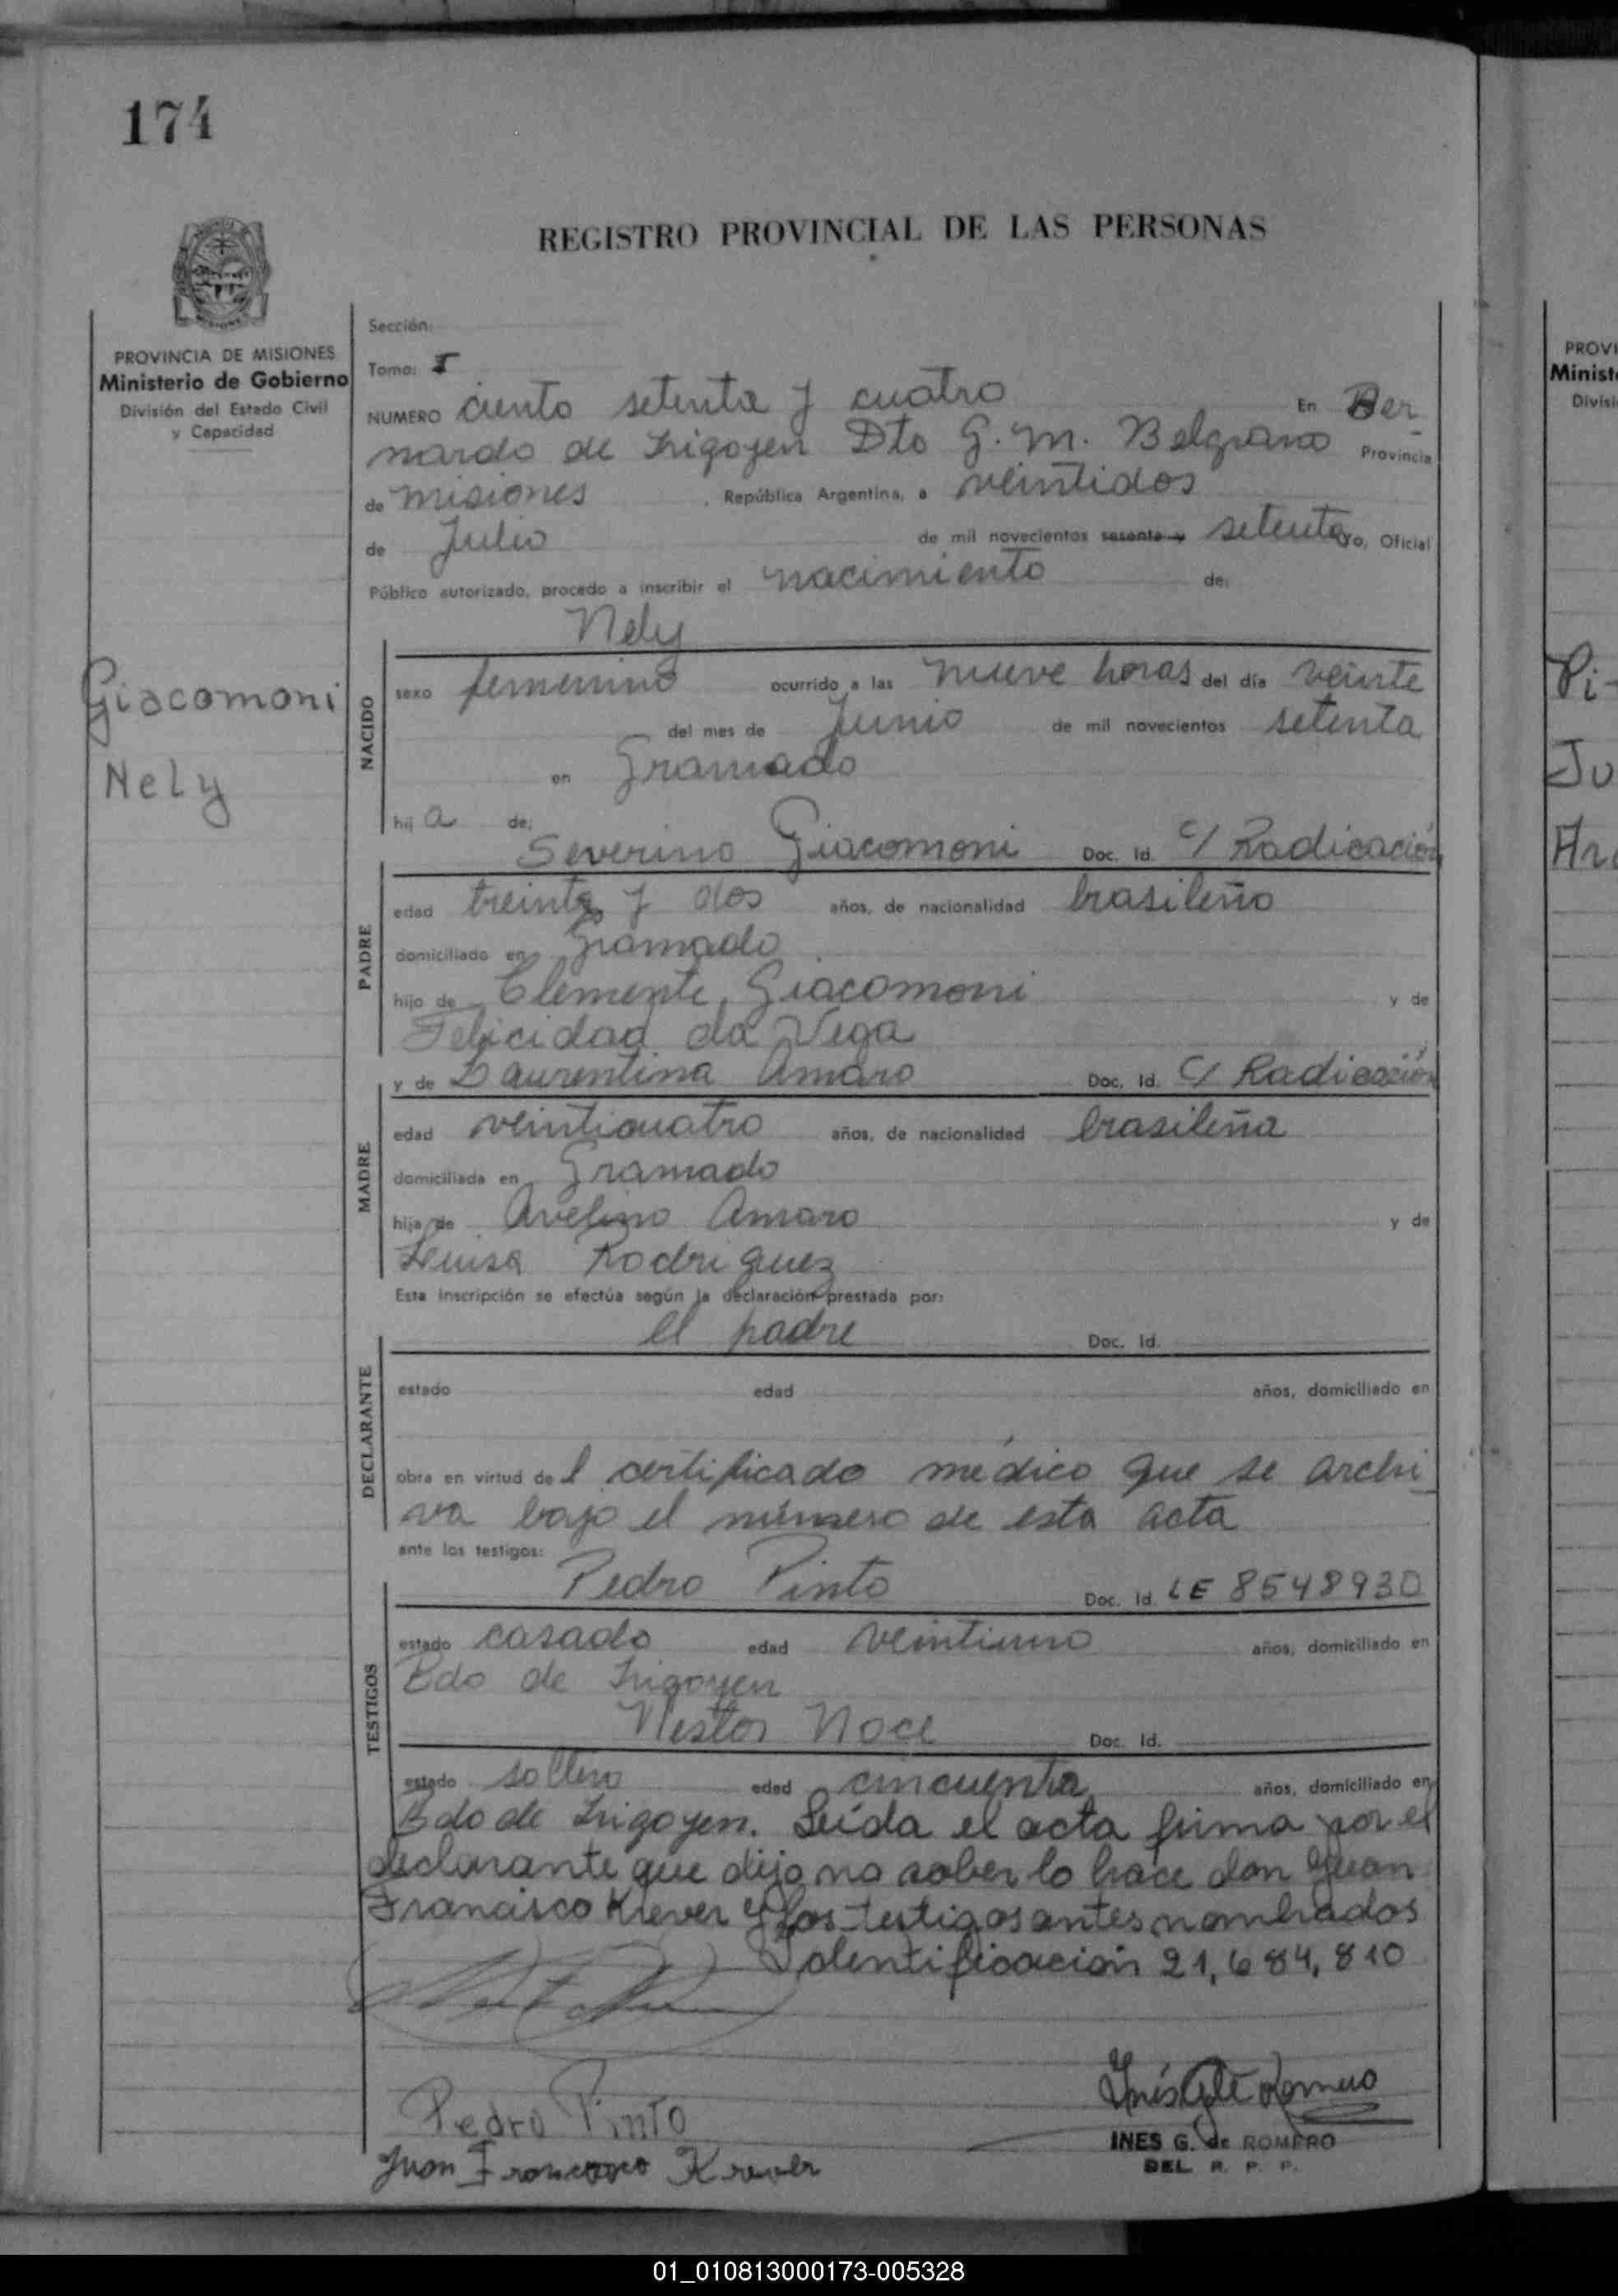 174
REGISTRO PROVINCIAL DE LAS PERSONAS
PROVINCIA DE MISIONES
Ministerio de Gobierno
División del Estado Civil
y Capacidad
Giacomoni
Nely
Sección:
Tomo: I
NUMERO ciento setenta y cuatro En Ber
nardo de Irigoyen Dto G. M. Belgrano Provincia
de Misiones , República Argentina, a veintidos
de Julio de mil novecientos sesenta y setenta yo, Oficial
Público autorizado, procedo a inscribir el nacimiento de:
Nely
NACIDO
sexo femenino ocurrido a las nueve horas del día veinte
del mes de Junio de mil novecientos setenta
en Gramado
hij a de:
Severino Giacomoni Doc. Id. C/ Radicación
PADRE
edad treinta y dos años, de nacionalidad brasileño
domiciliado en Gramado
hijo de Clemente Giacomoni y de
Felicidad da Vega
y de Laurentina Amaro Doc. Id. C/ Radicación
MADRE
edad veinticuatro años, de nacionalidad brasileña
domiciliada en Gramado
hija de Avelino Amaro y de
Luisa Rodriguez
Esta inscripción se efectúa según la declaración prestada por:
el padre Doc. Id.
DECLARANTE
estado edad años, domiciliado en
obra en virtud de l certificado médico que se archi
va bajo el número de esta acta
ante los testigos:
Pedro Pinto Doc. Id. LE 8548930
TESTIGOS
estado casado edad veintiuno años, domiciliado en
Bdo de Irigoyen
Nestor Noce Doc. Id.
estado soltero edad cincuenta años, domiciliado en
Bdo de Irigoyen. Leída el acta firma por el
declarante que dijo no saber lo hace don Juan
Francisco Krever y los testigos antes nombrados
Identificación 21,684,810
Pedro Pinto
Juan Francisco Krever
Inés G de Romero
INES G. de ROMERO
DEL R. P. P.
PROVI
Minist
Divisi
Pi-
Ju
01_010813000173-005328